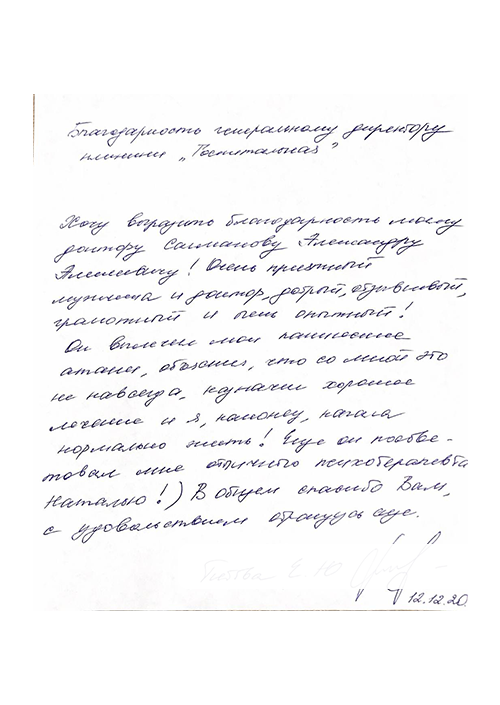 Благодарность генеральному директору
клиники „Госпитальная"
Хочу выразить благодарность моему
доктору Салманову Александру
Алексеевичу! Очень приятный
мужчина и доктор, добрый, отзывчивый,
грамотный и очень опытный!
Он вылечил мои панические
атаки, объяснил, что со мной это
не навсегда, назначил хорошее
лечение и я, наконец, начала
нормально жить! Еще он посове-
товал мне отличного психотерапевта
Наталью!) В общем спасибо Вам,
с удовольствием обращусь еще.
Е Ю
12.12.20.